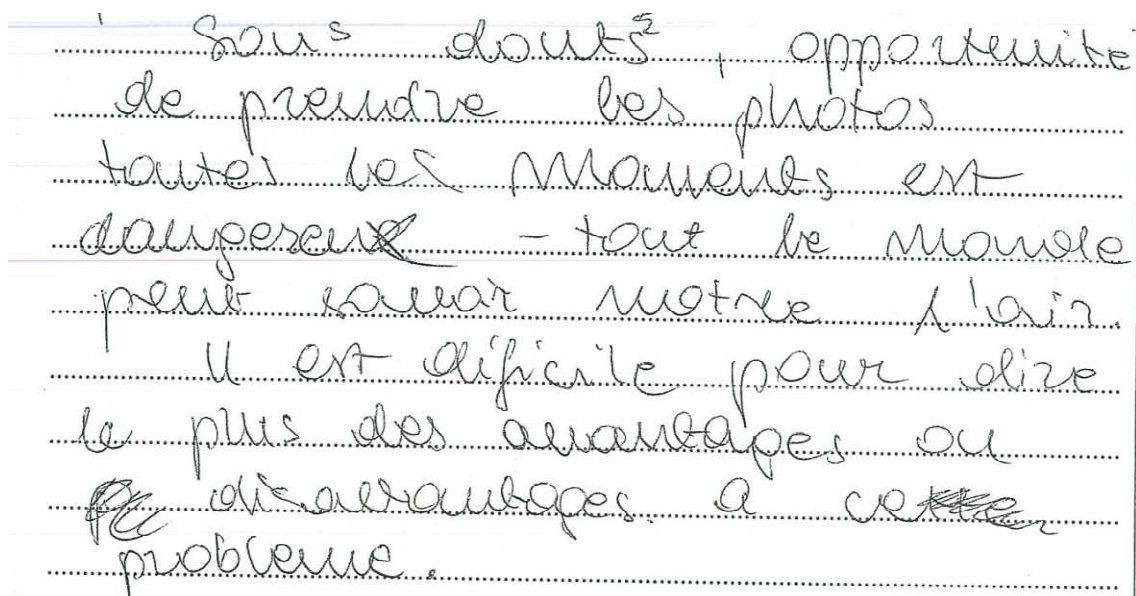 Sous douts, opportunite
de prendre les photos
toutes les moments est
dangereseux - tout le monde
peut savoir notre l'air.
Il est dificile pour dire
le plus des avantages ou
disavantages a ce
probleme.